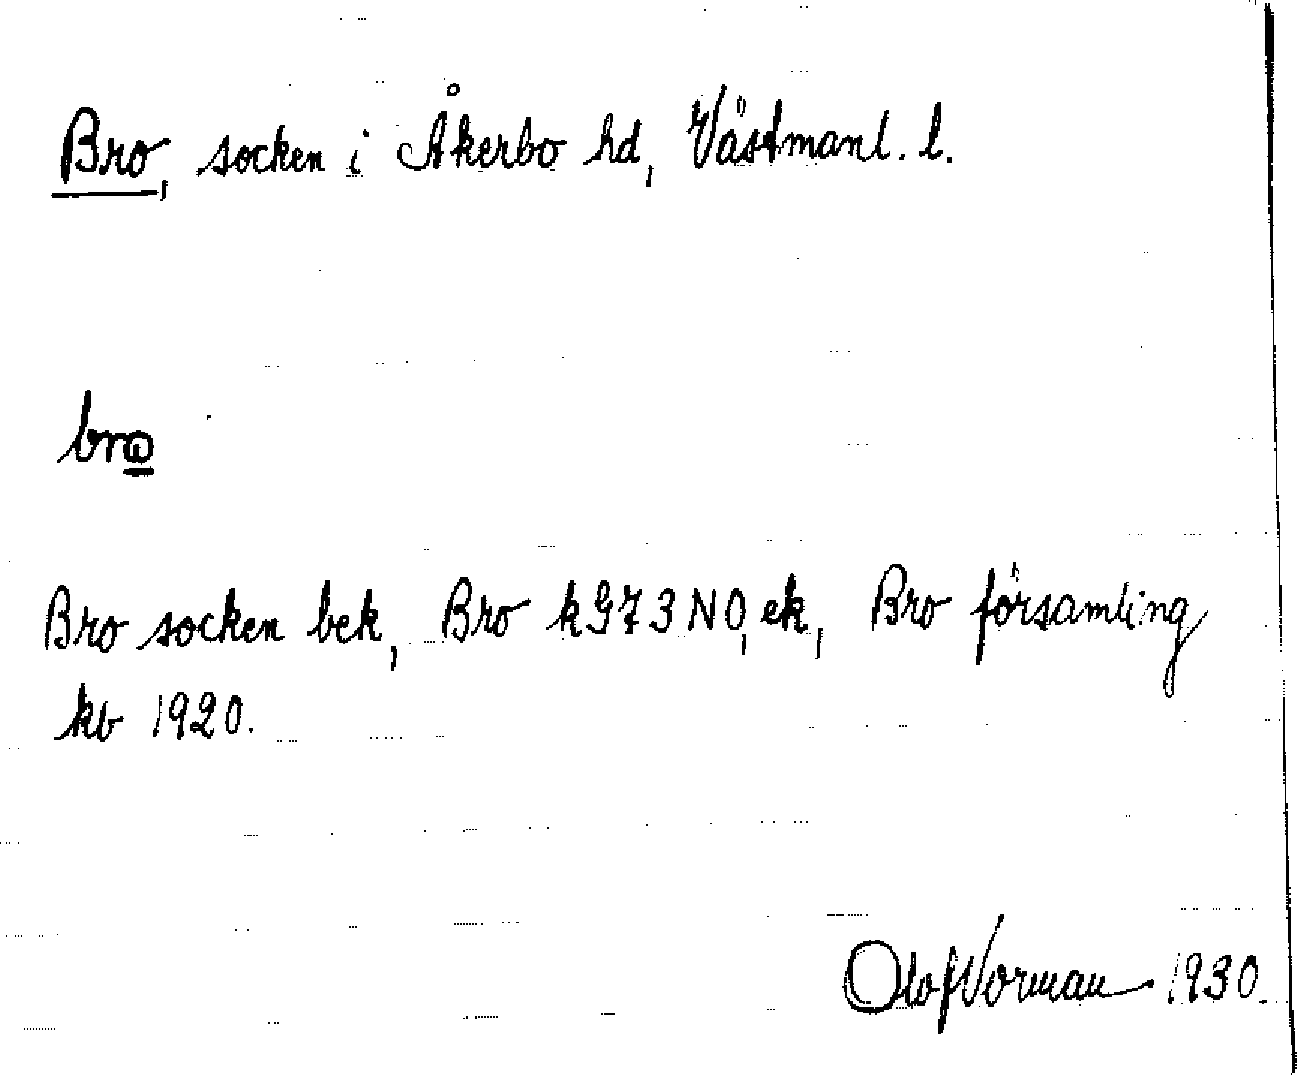 Bro, socken i Åkerbo hd, Västmanl. l.
bro
Bro socken bek, Bro kG73NO, ek, Bro församling
kb 1920.
Olof Norman 1930.